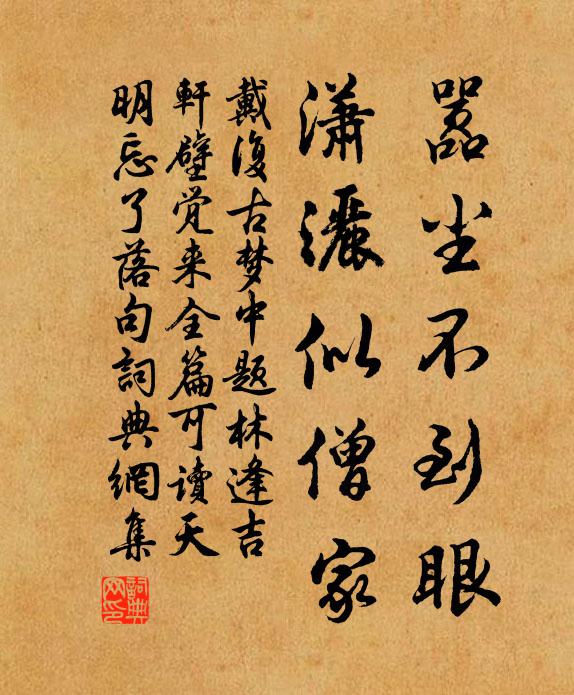 嚣尘不到眼
瀟灑似僧家
戴復古梦中題林逢吉
軒壁覚来全篇可讀天
明忘了落句詞典網集
詞典网印